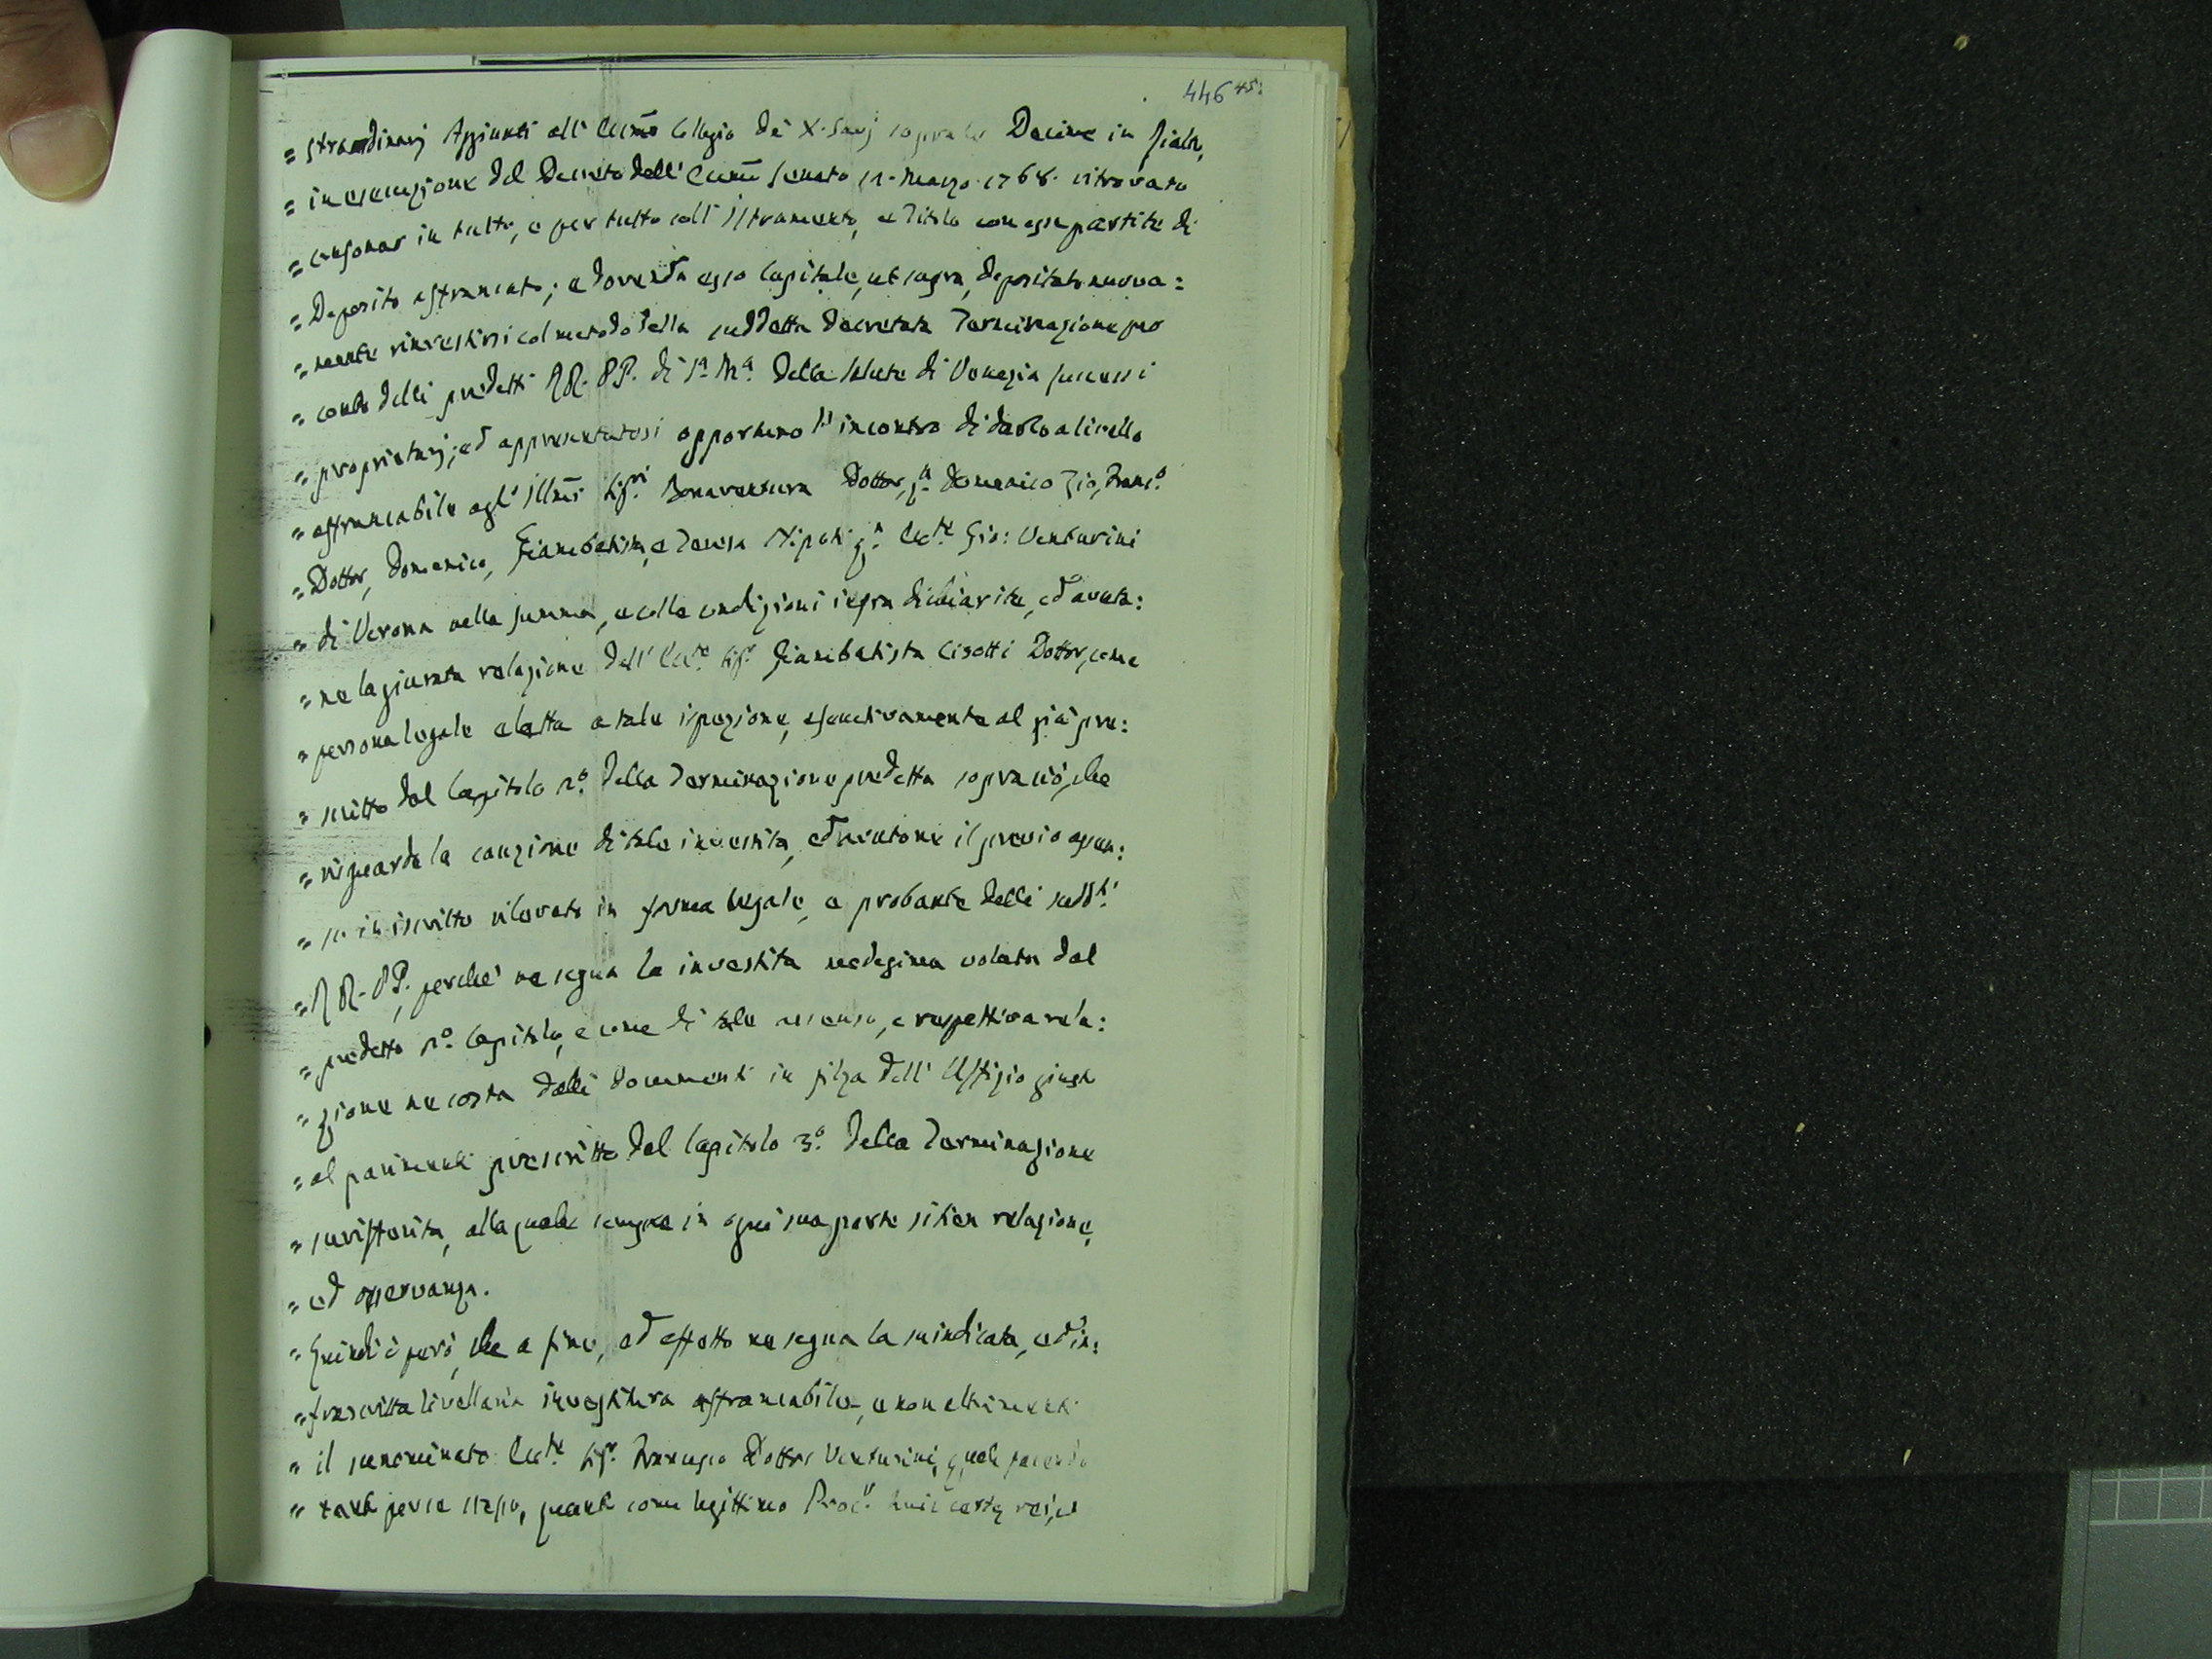 446 45:
= straordinarj Aggiunti all' Eccmo Collegio dei X. Savj sopra le Decime in Rialto,
= in esecuzione del Decreto dell' Eccmo Senato 12. Marzo 1768. ritrovato
= consonar in tutto, e per tutto coll' Istrumento, e Titolo con esse partite di
= Deposito affrancato; e dovendo esso Capitale, ut supra, depositato nuova:
= mente rinvestirsi col metodo della suddetta decretata Terminazione per
= conto delli predetti RR. PP. di Sa. Ma. della Salute di Venezia successi
= proprietarj; ed appresentatosi opportuno l' incontro di darlo a livello
= affrancabile agl' Illmi Sigri Bonaventura Dottor, qm Domenico Zio, Franco.
= Dottor, Domenico, Giambatista, e Teresa Nipoti qm Eccte. Gio: Venturini
= di Verona nella summa, e colle condizioni infra dichiarite, ed avuta:
= ne la giurata relazione dell' Eccte. Sigr Giambatista Cisotti Dottor, come
= persona legale eletta a tale ispezione, esecutivamente al già pre:
= scritto dal Capitolo 2o. della Terminazione predetta sopra ciò, che
= riguarda la cauzione di tale investita, ed avutone il previo assen:
= so in iscritto rilevato in forma legale, e probante delli suddti
= RR. PP., perchè ne segua la investita medesima voluta dal
= predetto 2o. Capitolo, e come di tale assenso, e respettiva rela:
= zione ne costa dalli documenti in filza dell' Uffizio giusto
= al parimenti prescritto dal Capitolo 3o. della Terminazione
= surifferita, alla quale sempre in ogni sua parte si tien relazione,
= ed osservanza.
= Quindi è però, che a fine, ed effetto ne segua la suindicata, ed in:
= frascritta livellaria investitura affrancabile, e non altrimenti
= il sunominato Eccte. Sigr. Francesco Dottor Venturini, qual facendo
= tanto per se stesso, quanto come legittimo Procr.